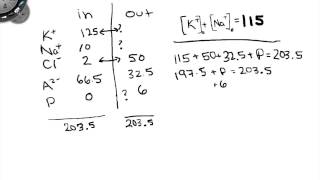 in out
K⁺ 125 ↔ ?
Na⁺ 10 ?
Cl⁻ 2 ↔ 50
A²⁻ 66.5 32.5
P 0 ? 6
203.5 203.5
[K⁺]₀ + [Na⁺]₀ = 115
115 + 50 + 32.5 + P = 203.5
197.5 + P = 203.5
+6